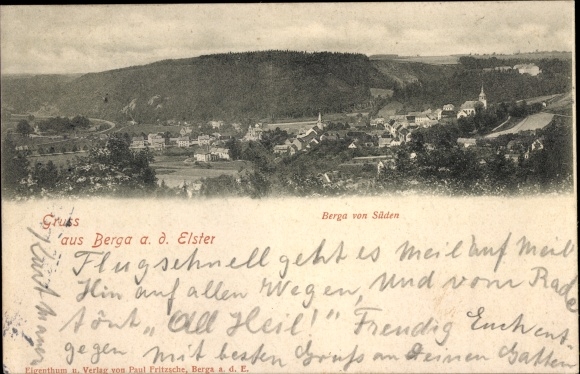 Gruss
aus Berga a. d. Elster
Berga von Süden
Flugschnell geht es Meil auf Meil
Hin auf allen Wegen, Und vom Rade
tönt „All Heil!" Freudig Euch ent-
gegen mit besten Gruß an Deinen Gatten
Eigenthum u. Verlag von Paul Fritzsche, Berga a. d. E.